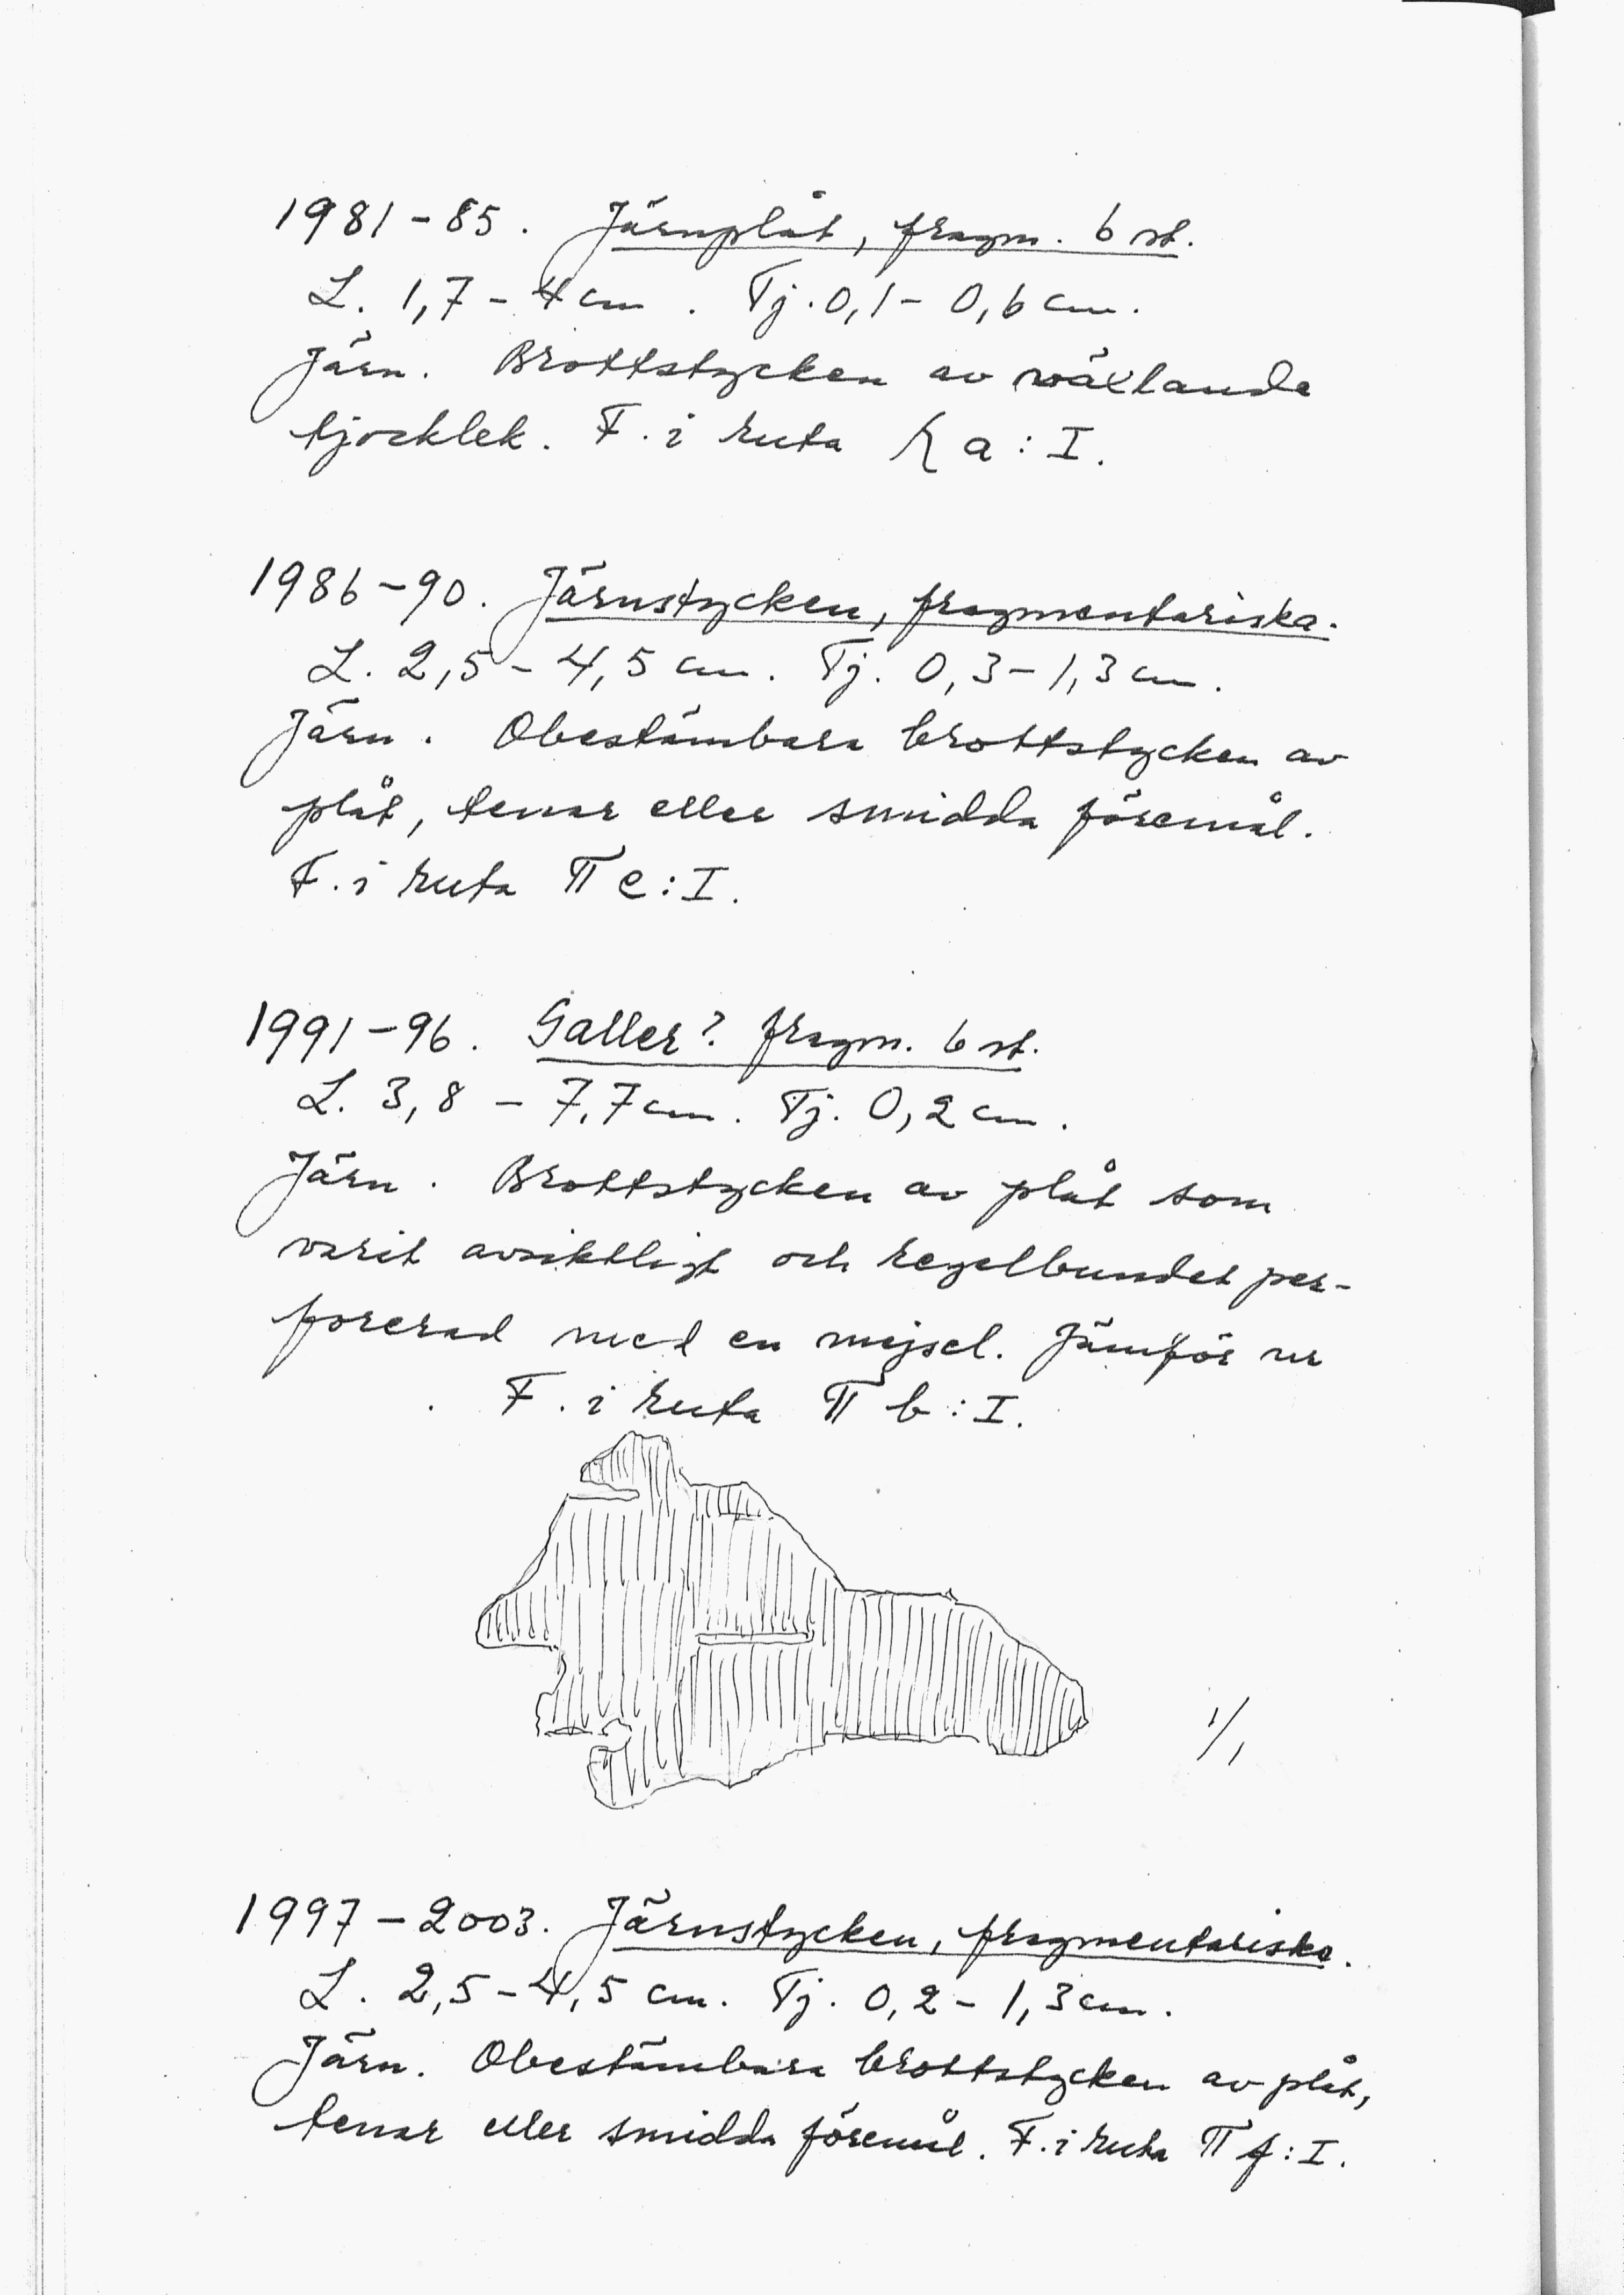 1981-85. Järnplåt, fragm. 6 st.
L. 1,7 - 4 cm. Tj. 0,1 - 0,6 cm.
Järn. Brottstycken av växlande
tjocklek. F. i ruta a : I.
1986-90. Järnstycken, fragmentariska.
L. 2,5 - 4,5 cm. Tj. 0,3 - 1,3 cm.
Järn. Obestämbara brottstycken av
plåt, tenar eller smidda föremål.
F. i ruta π e : I.
1991-96. Galler? fragm. 6 st.
L. 3,8 - 7,7 cm. Tj. 0,2 cm.
Järn. Brottstycken av plåt som
varit avsiktligt och regelbundet per-
forerad med en mejsel. Jämför nr
F. i ruta π b : I.
1/1
1997-2003. Järnstycken, fragmentariska.
L. 2,5 - 4,5 cm. Tj. 0,2 - 1,3 cm.
Järn. Obestämbara brottstycken av plåt,
tenar eller smidda föremål. F. i ruta π f : I.